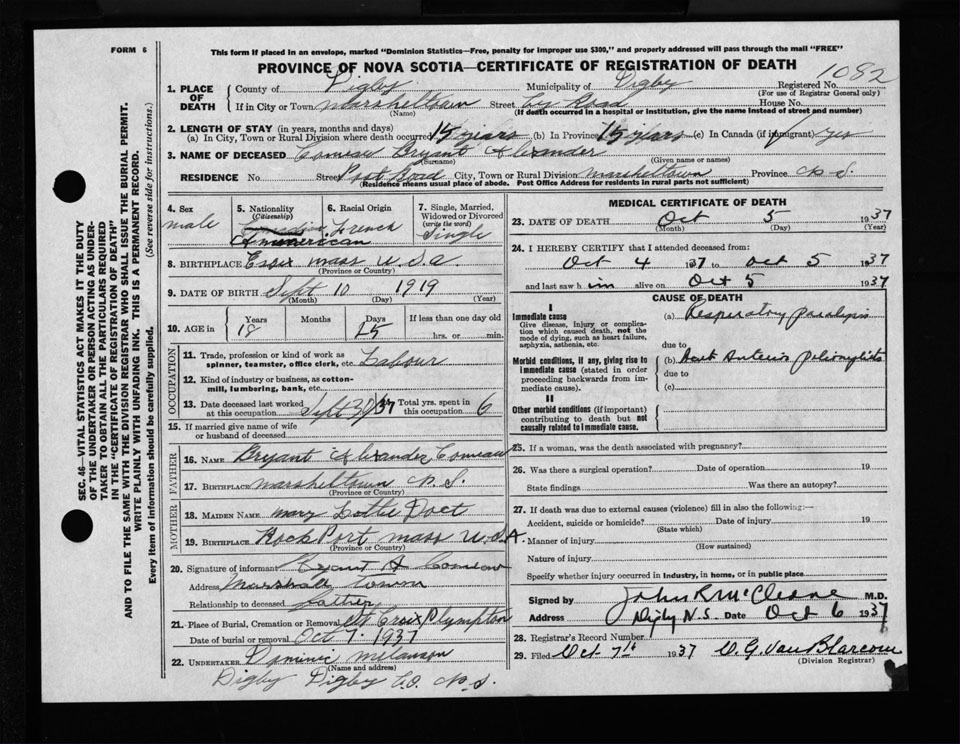 FORM 6
This form if placed in an envelope, marked "Dominion Statistics—Free, penalty for improper use $300," and properly addressed will pass through the mail "FREE"
PROVINCE OF NOVA SCOTIA—CERTIFICATE OF REGISTRATION OF DEATH
1082
1. PLACE OF DEATH
County of Digby Municipality of Digby Registered No.
(For use of Registrar General only)
If in City or Town Marshelltown Street Road House No.
(Name) (If death occurred in a hospital or institution, give the name instead of street and number)
2. LENGTH OF STAY (in years, months and days)
(a) In City, Town or Rural Division where death occurred 15 years (b) In Province 15 years (c) In Canada (if immigrant) yes
3. NAME OF DECEASED Comeau Bryant Alexander
(Surname) (Given name or names)
RESIDENCE No. Street Post Road City, Town or Rural Division Marshelltown Province N.S.
(Residence means usual place of abode. Post Office Address for residents in rural parts not sufficient)
4. Sex
male
5. Nationality
(Citizenship)
Ammerican
6. Racial Origin
French
7. Single, Married, Widowed or Divorced
(write the word)
Single
8. BIRTHPLACE Essex Mass U.S.A.
(Province or Country)
9. DATE OF BIRTH Sept 10 1919
(Month) (Day) (Year)
10. AGE in
Years 18 Months Days 25 If less than one day old
hrs. or min.
OCCUPATION
11. Trade, profession or kind of work as
spinner, teamster, office clerk, etc. Labour
12. Kind of industry or business, as cotton-
mill, lumbering, bank, etc.
13. Date deceased last worked Sept 30/37 Total yrs. spent in
at this occupation this occupation 6
15. If married give name of wife
or husband of deceased
FATHER
16. NAME Bryant Alexander Comeau
17. BIRTHPLACE Marshelltown N.S.
(Province or Country)
MOTHER
18. MAIDEN NAME Mary Lottie Doct
19. BIRTHPLACE Rock Port Mass U.S.A
(Province or Country)
20. Signature of informant Bryant A Comeau
Address Marshall town
Relationship to deceased father
21. Place of Burial, Cremation or Removal St Croix Plympton
Date of burial or removal Oct 7. 1937
22. UNDERTAKER Dominic Melanson
(Name and address)
Digby Digby Co. N.S.
MEDICAL CERTIFICATE OF DEATH
23. DATE OF DEATH Oct 5 1937
(Month) (Day) (Year)
24. I HEREBY CERTIFY that I attended deceased from:
Oct 4 1937 to Oct 5 1937
and last saw him alive on Oct 5 1937
CAUSE OF DEATH
I
Immediate cause
Give disease, injury or complica-
tion which caused death, not the
mode of dying, such as heart failure,
asphyxia, asthenia, etc.
(a) Respiratory paralysis
due to
Morbid conditions, if any, giving rise to
immediate cause (stated in order
proceeding backwards from im-
mediate cause).
(b) Anterior poliomyelitis
due to
(c)
II
Other morbid conditions (if important)
contributing to death but not
causally related to immediate cause.
25. If a woman, was the death associated with pregnancy?
26. Was there a surgical operation? Date of operation 19
State findings Was there an autopsy?
27. If death was due to external causes (violence) fill in also the following:—
Accident, suicide or homicide? Date of injury 19
(State which)
Manner of injury
(How sustained)
Nature of injury
Specify whether injury occurred in industry, in home, or in public place
Signed by M.D.
Address Digby N.S. Date Oct 6 1937
28. Registrar's Record Number
29. Filed Oct 7th 1937 Van Blarcom
(Division Registrar)
SEC. 46—VITAL STATISTICS ACT MAKES IT THE DUTY
OF THE UNDERTAKER OR PERSON ACTING AS UNDER-
TAKER TO OBTAIN ALL THE PARTICULARS REQUIRED
IN THE "CERTIFICATE OF REGISTRATION OF DEATH"
AND TO FILE THE SAME WITH THE DIVISION REGISTRAR WHO SHALL ISSUE THE BURIAL PERMIT.
WRITE PLAINLY WITH UNFADING INK. THIS IS A PERMANENT RECORD.
Every item of information should be carefully supplied. (See reverse side for instructions.)